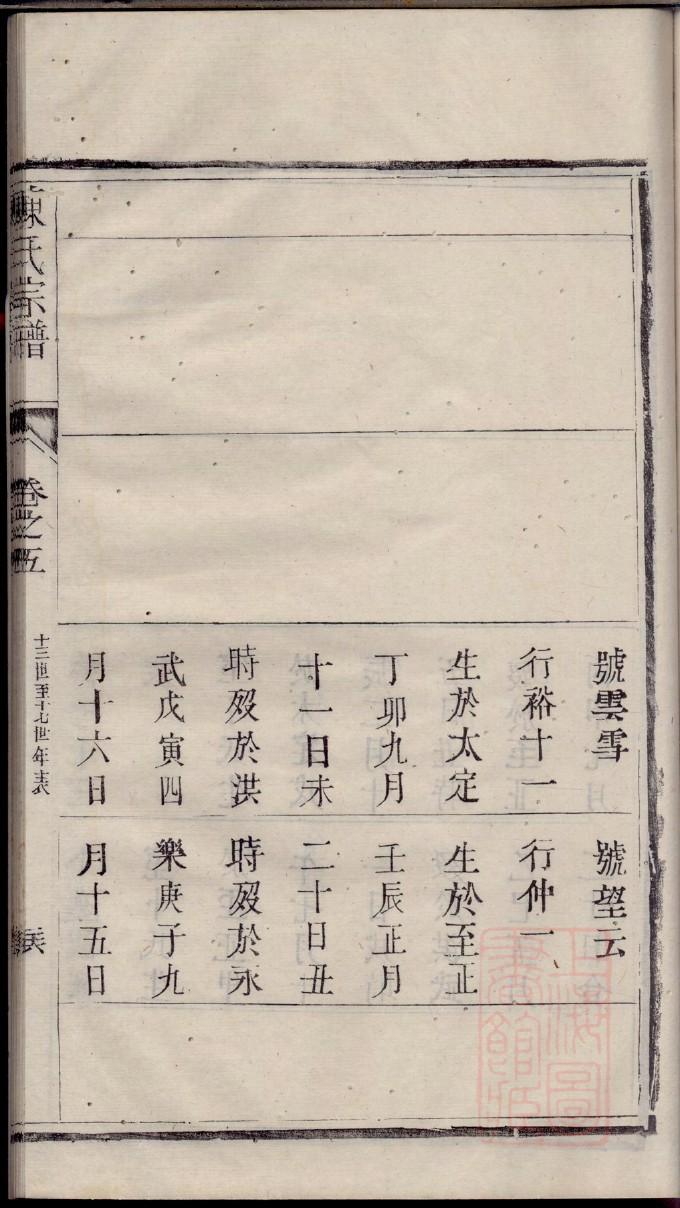 號雲雪
行裕十一
生於太定
丁卯九月
十一日未
時歿於洪
武戊寅四
月十六日
號望云
行仲一
生於至正
壬辰正月
二十日丑
時歿於永
樂庚子九
月十五日
陳氏宗譜
卷之五
十三世至十七世年表